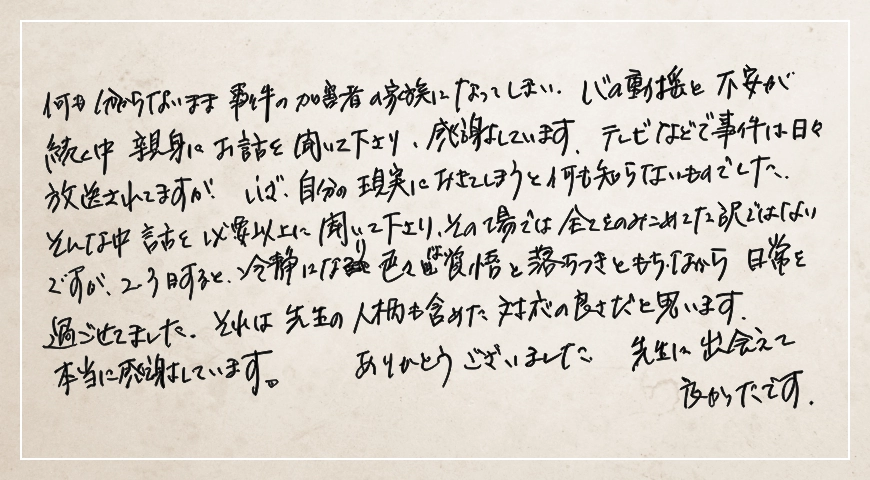 何も分からないまま 事件の加害者の家族になってしまい、心の動揺と不安が
続く中 親身にお話を聞いて下さり、感謝しています。テレビなどで事件は日々
放送されてますが、いざ、自分の現実におきてしまうと何も知らないものでした。
そんな中 話を必要以上に聞いて下さり、その場では全てをのみこめてた訳ではない
ですが、2~3日すると、冷静になり 色々な覚悟と落ちつきをもちながら 日常を
過ごせてました。それは 先生の人柄も含めた対応の良さだと思います。
本当に感謝しています。 ありがとうございました 先生に出会えて
良かったです.